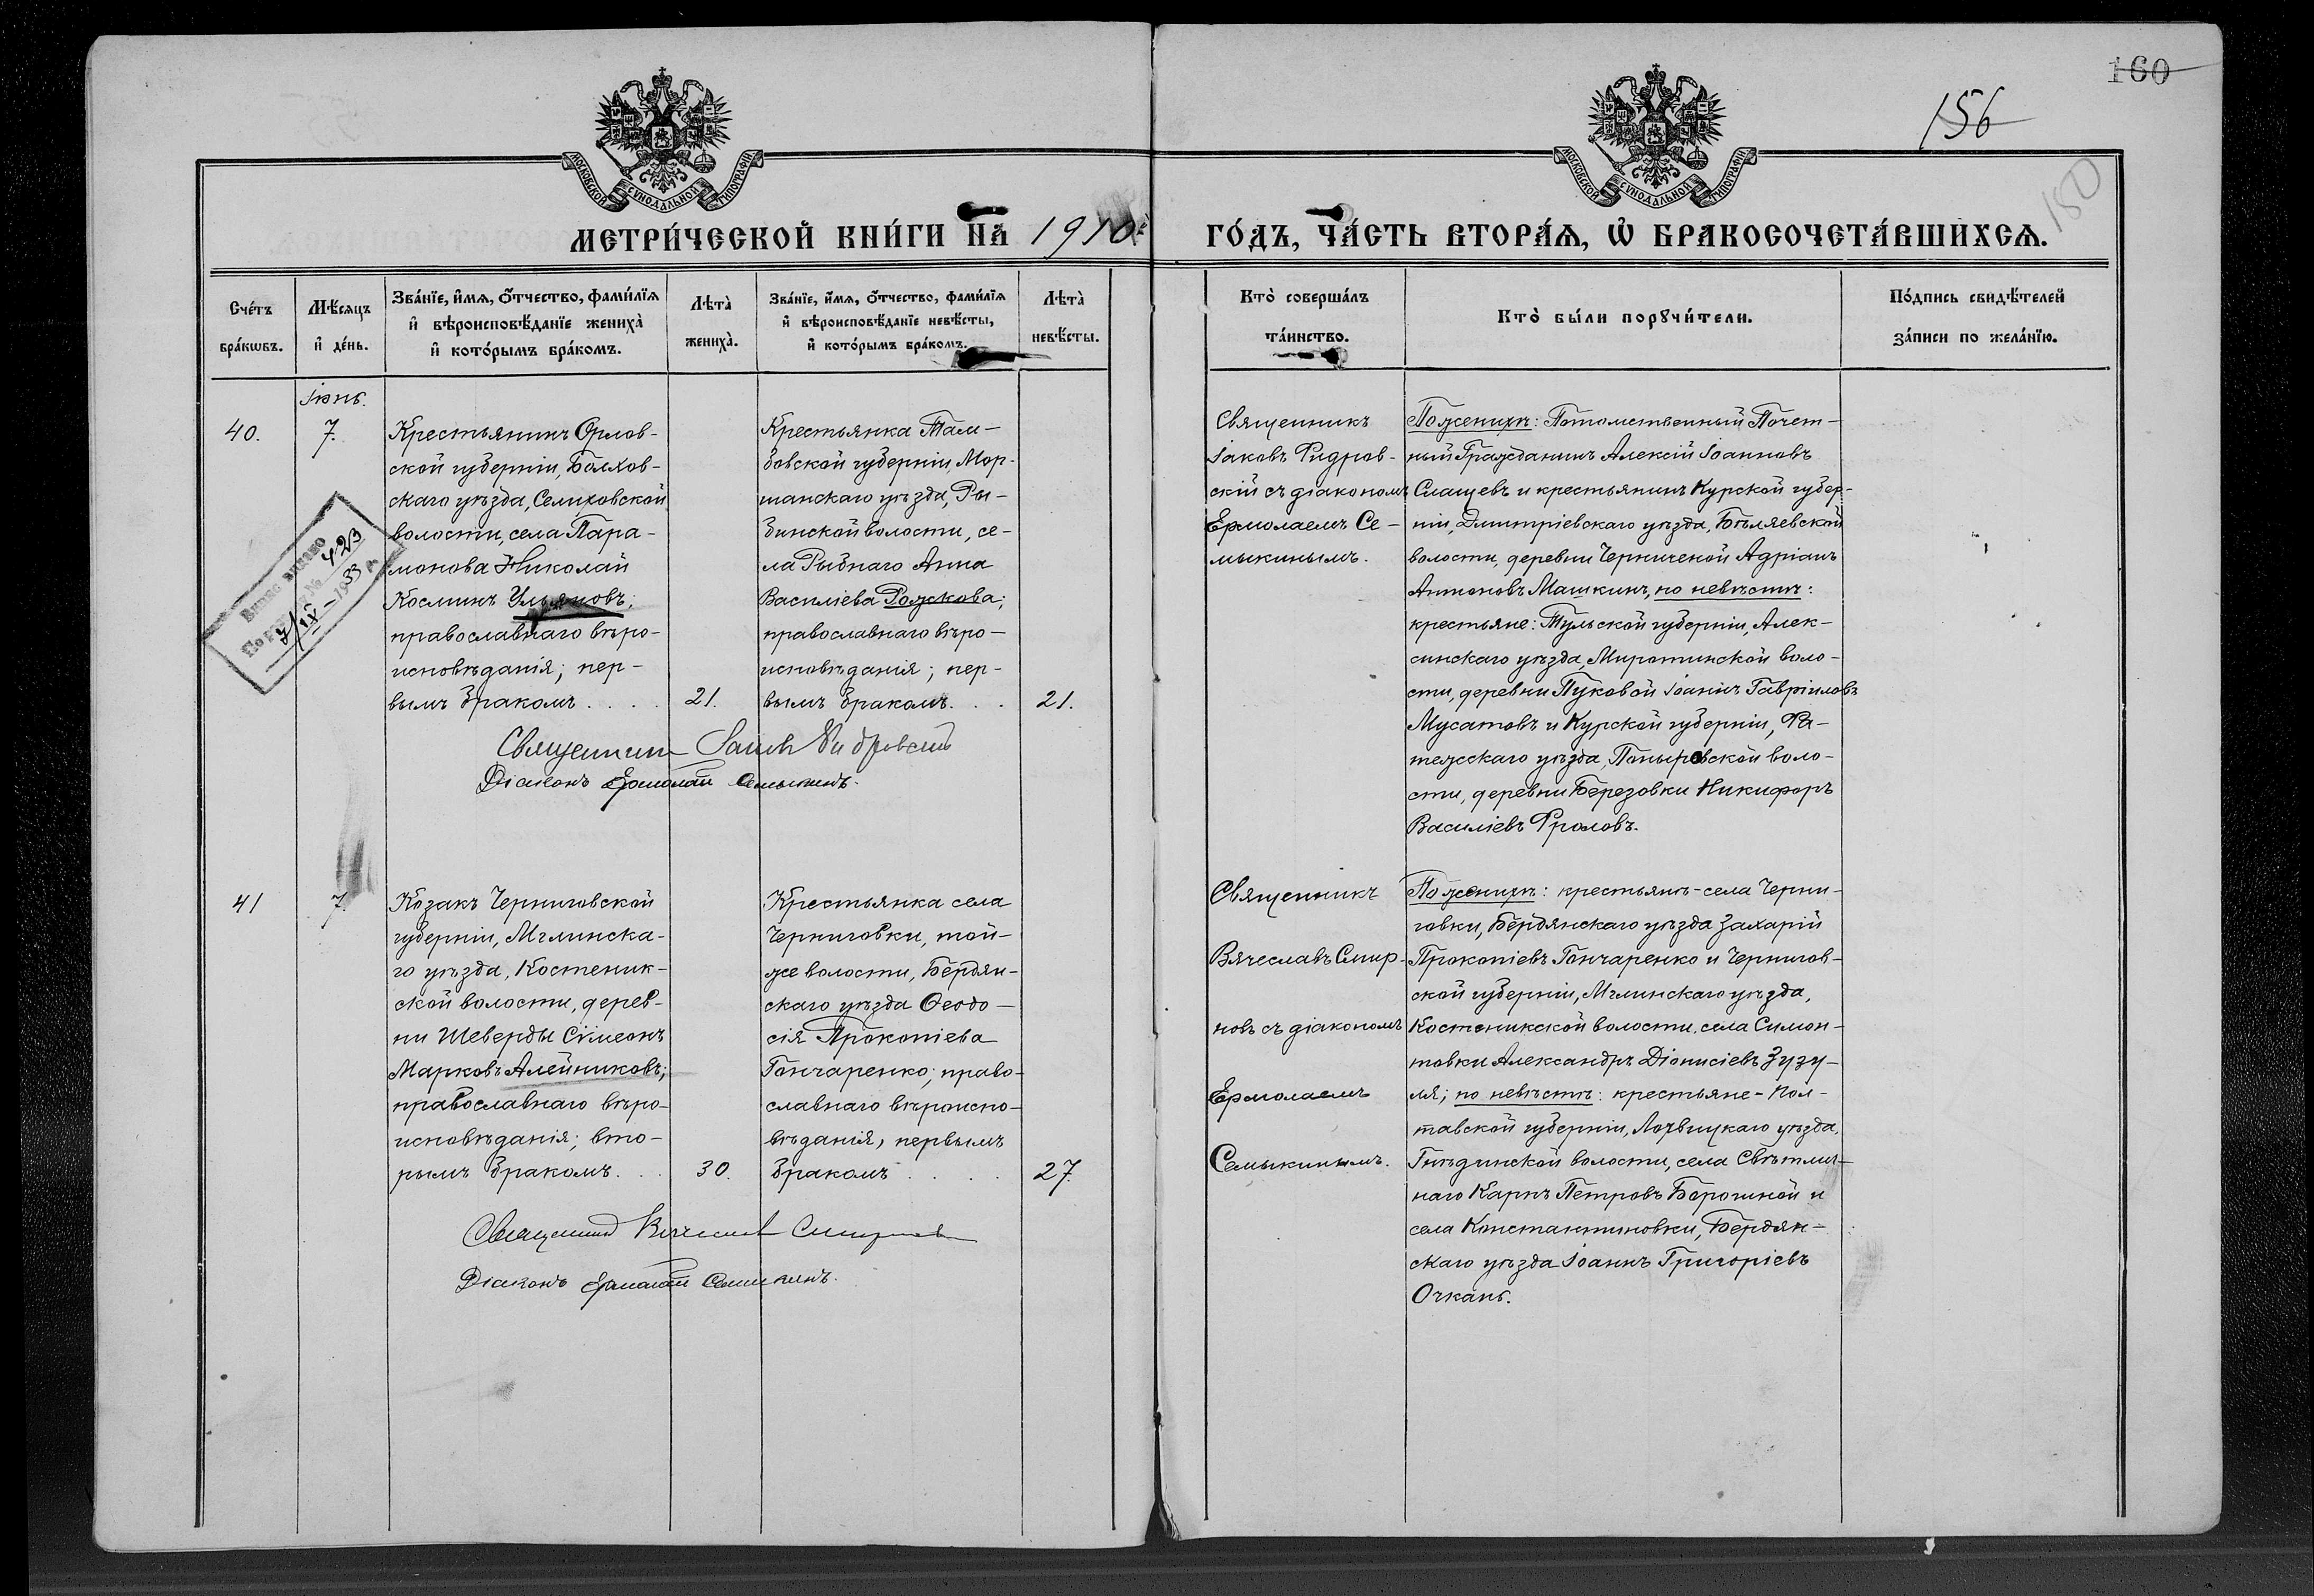 160
156
150
МОСКОВСКОЙ СѴНОДАЛЬНОЙ ТИПОГРАФІИ
МОСКОВСКОЙ СѴНОДАЛЬНОЙ ТИПОГРАФІИ
МЕТРИ́ЧЕСКОЙ КНИ́ГИ НА̀ 1910й
ГО́ДЪ, ЧА́СТЬ ВТОРА́Ѧ, Ѽ БРАКОСОЧЕТА́ВШИХСѦ.
Сче́тъ
бра́кѡвъ.
Мѣ́сѧцъ
и҆ де́нь.
Зва́нїе, и҆́мѧ, ѻ҆́тчество, фами́лїѧ
и҆ вѣроисповѣ́данїе жениха̀
и҆ кото́рымъ бра́комъ.
Лѣта̀
жениха̀.
Зва́нїе, и҆́мѧ, ѻ҆́тчество, фами́лїѧ
и҆ вѣроисповѣ́данїе невѣ́сты,
и҆ кото́рымъ бра́комъ.
Лѣта̀
невѣ́сты.
Кто̀ соверша́лъ
та́инство.
Кто̀ бы́ли порꙋчи́тели.
По́дпись свидѣ́телей
за́писи по жела́нїю.
Іюнь.
40.
7.
Крестьянинъ Орлов-
ской губерніи, Болхов-
скаго уѣзда, Селиховской
волости, села Пара-
монова Николай
Космин Ульяновъ;
православнаго вѣро-
исповѣданія; пер-
вымъ бракомъ . . . .
21.
Крестьянка Там-
бовской губерніи, Мор-
шанскаго уѣзда, Ры-
бинской волости, се-
ла Рыбнаго Анна
Василіева Рожкова;
православнаго вѣро-
исповѣданія; пер-
вымъ бракомъ. . .
21.
Священникъ
Іаковъ Гидров-
скій съ діакономъ
Ермолаемъ Се-
мыкинымъ.
По женихѣ: Потомственный Почет-
ный Гражданинъ Алексій Іоанновъ
Слащевъ и крестьянинъ Курской губер-
ніи, Дмитріевскаго уѣзда, Бѣляевской
волости, деревни Черниченой Адріанъ
Антоновъ Машкинъ, по невѣстѣ:
крестьяне: Тульской губерніи, Алек-
синскаго уѣзда, Миротинской воло-
сти, деревни Пуковой Іоаннъ Гавріиловъ
Мусатовъ и Курской губерніи, Фа-
тежскаго уѣзда, Поныровской воло-
сти, деревни Березовки Никифоръ
Василіевъ Фроловъ.
Випис видано
423
7/IX - 1933
Священникъ Іаковъ Гидровскій
Діаконъ Ермолай Семыкинъ.
41
7.
Козакъ Черниговской
губерніи, Мглинска-
го уѣзда, Костеник-
ской волости, дерев-
ни Шеверды Сімеонъ
Марковъ Алейниковъ;
православнаго вѣро-
исповѣданія; вто-
рымъ бракомъ. . .
30.
Крестьянка села
Черниговки, той-
же волости, Бердян-
скаго уѣзда Ѳеодо-
сія Прокопіева
Гончаренко; право-
славнаго вѣроиспо-
вѣданія, первымъ
бракомъ . . . .
27.
Священникъ
Вячеславъ Смир-
новъ съ діакономъ
Ермолаемъ
Семыкинымъ.
По женихѣ: крестьянъ-села Черни-
говки, Бердянскаго уѣзда Захарій
Прокопіевъ Гончаренко и Чернигов-
ской губерніи, Мглинскаго уѣзда,
Костеникской волости, села Симон-
товки Александръ Діонисіевъ Зузу-
ля; по невѣстѣ: крестьяне - Пол-
тавской губерніи, Лохвицкаго уѣзда,
Гнѣдинской волости, села Свѣтлич-
наго Карпъ Петровъ Борошной и
села Константиновки, Бердян-
скаго уѣзда Іоаннъ Григоріевъ
Очкань.
Священникъ Вячеславъ Смирновъ
Діаконъ Ермолай Семыкинъ.